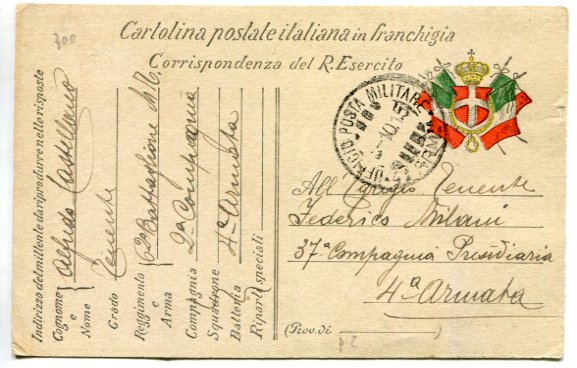 300
Cartolina postale italiana in franchigia
Corrispondenza del R. Esercito
Indirizzo del mittente da riprodurre nelle risposte
Cognome e Nome Alfredo Castellano
Grado Tenente
Reggimento e Arma Battaglione M.T.
Compagnia 2a Compagnia
Squadrone 4a Armata
Batteria
Riparti speciali
UFFICIO POSTA MILITARE
All'Egregio Tenente
Federico Milani
37a Compagnia Presidiaria
4a Armata
(Prov. di )